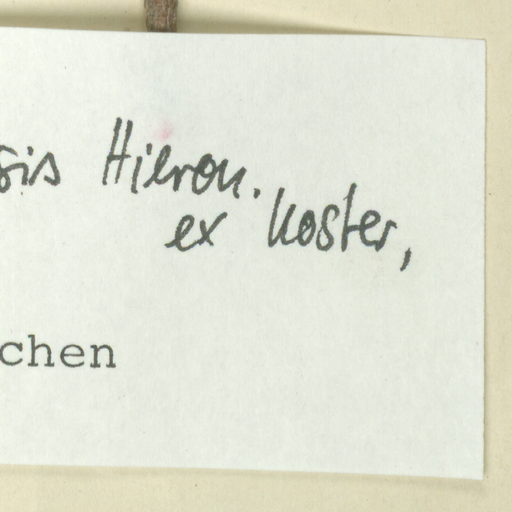 sis Hieron.
ex Koster,
chen